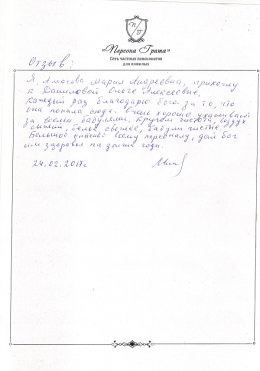 «Персона Грата»
Сеть частных пансионатов
для пожилых
Отзыв:
Я, Мария Андреевна, прихожу
к Даниловой Ольге Алексеевне.
Каждый раз благодарю бога за то, что
она попала сюда. Очень хорошо ухаживают
за всеми бабулями, кругом чистота, воздух
свежий, белье свежее, бабули чистые.
Большое спасибо всему персоналу, дай бог
им здоровья на долгие годы.
24.02.2017г